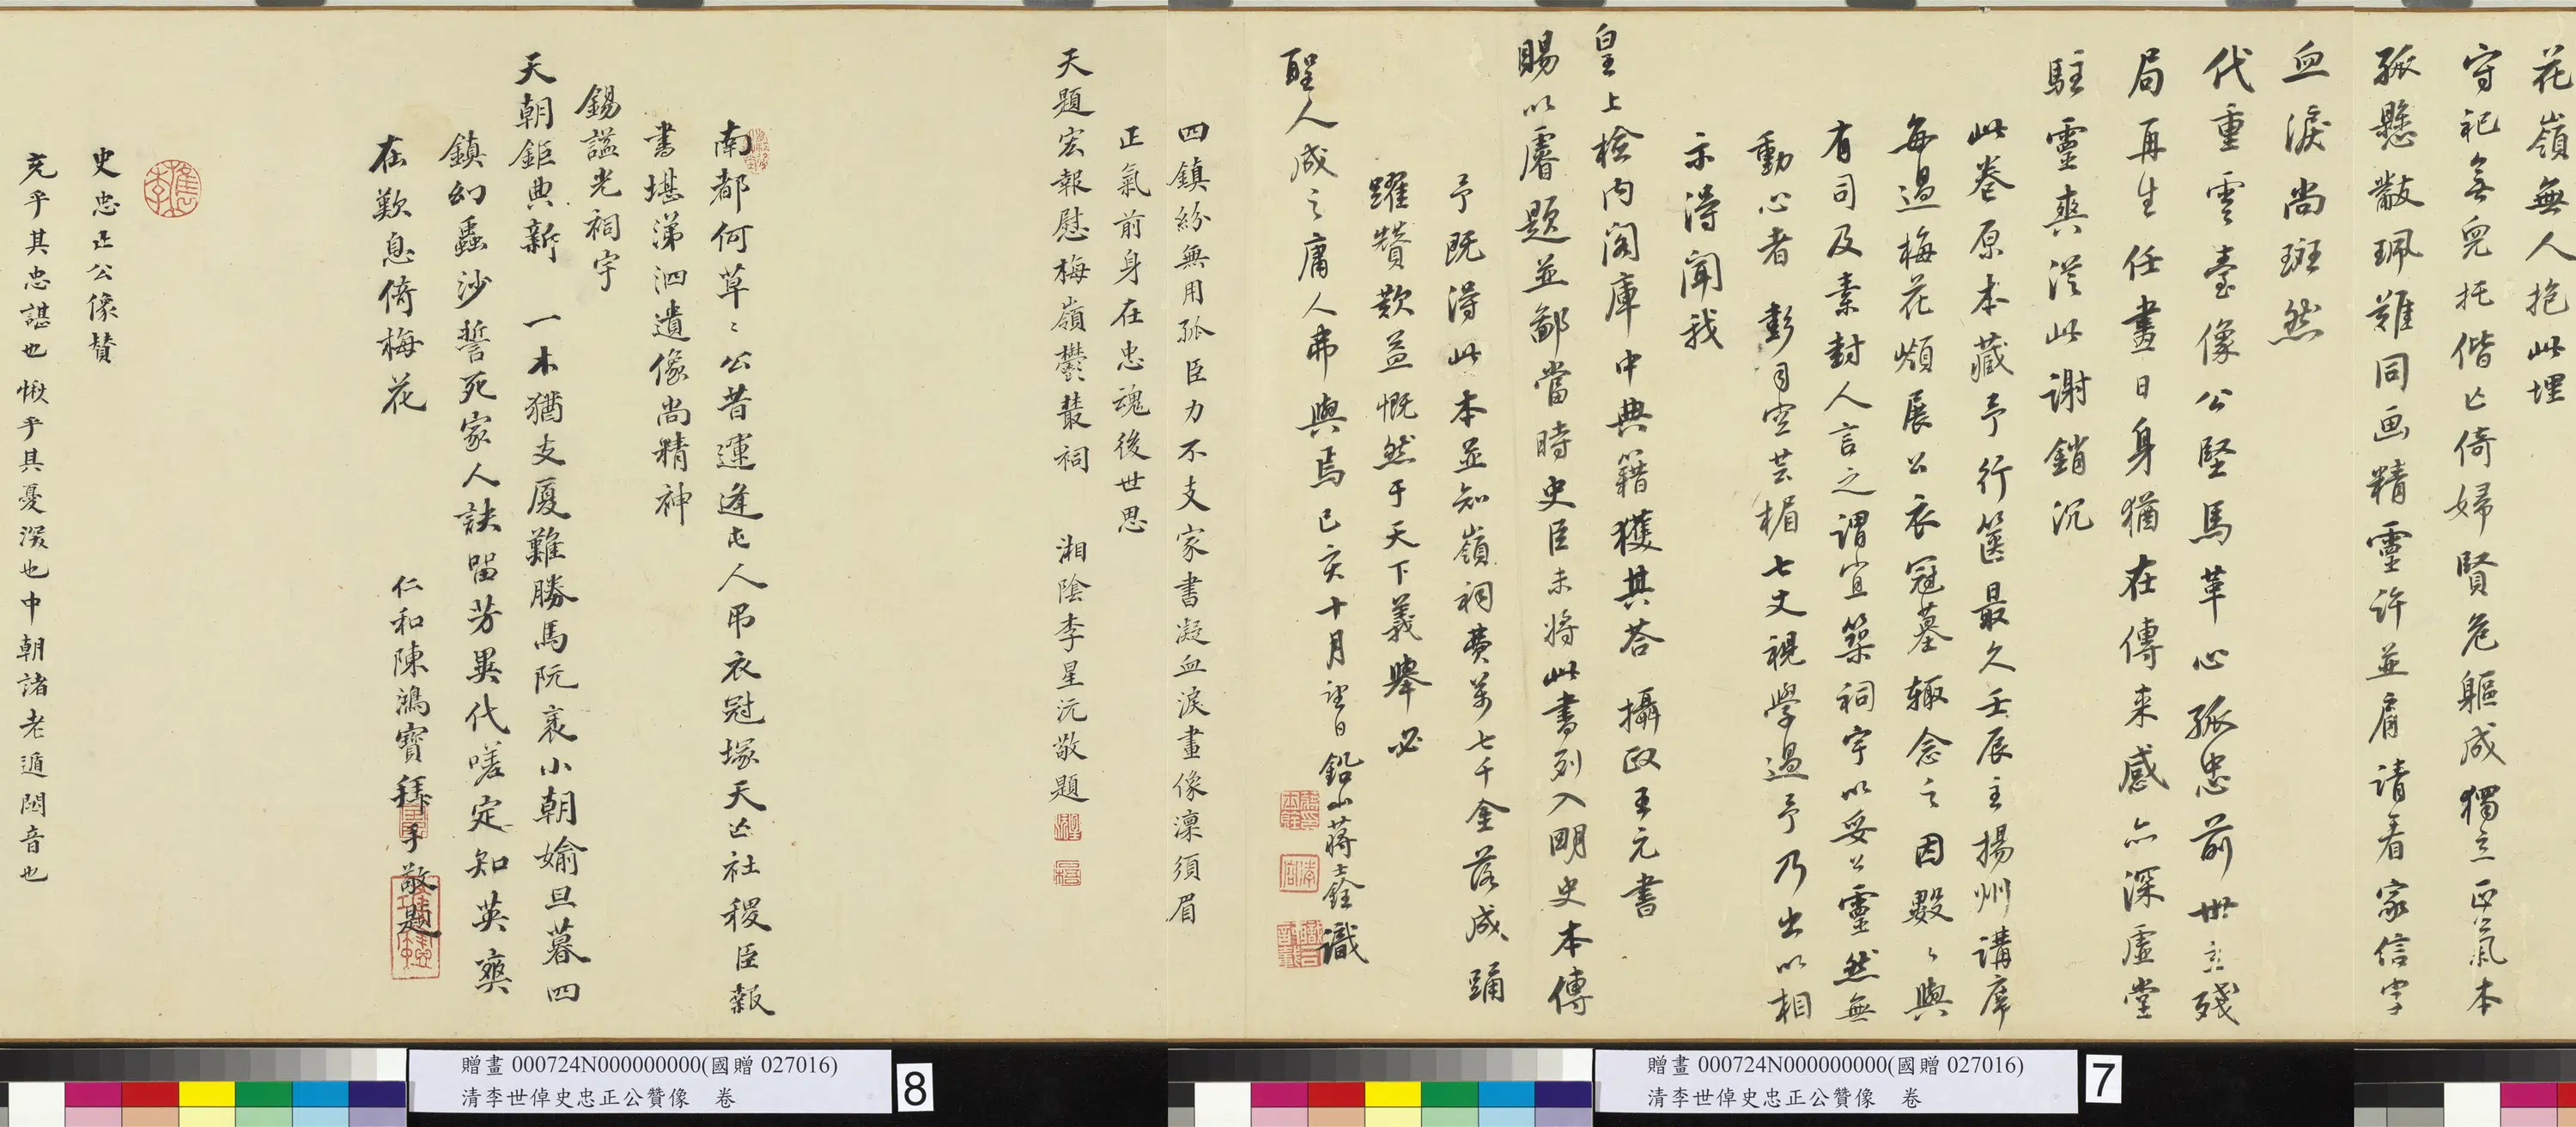 花嶺無人抱此埋
守祀無兒托偕亡倚婦賢危軀成獨立正氣本
孤懸黻珮難同画精靈許並肩請看家信字
血淚尚斑然
代重雲臺像公堅馬革心孤忠前世立殘
局再生任畫日身猶在傳来感亦深虛堂
駐靈爽從此謝銷沉
此卷原本藏予行篋最久壬辰主揚州講席
每過梅花嶺展公衣冠墓輒念之因數〻與
有司及素封人言之謂宜築祠宇以妥公靈然無
動心者 彭司空芸楣七丈視學過予乃出以相
示得聞我
皇上檢內閣庫中典籍獲其荅 攝政王元書
賜以睿題並鄙當時史臣未將此書列入明史本傳
予既得此本並知嶺祠費萬七千金落成踊
躍贊歎益慨然于天下義舉必
聖人成之庸人弗與焉己亥十月望日鉛山蔣士銓識
四鎮紛無用孤臣力不支家書凝血淚畫像凜須眉
正氣前身在忠魂後世思
天題宏報慰梅嶺鬱叢祠 湘陰李星沅敬題
南都何草〻公昔運逢屯人弔衣冠塚天亡社稷臣報
書堪涕泗遺像尚精神
錫謚光祠宇
天朝鉅典新 一木猶支廈難勝馬阮衺小朝媮旦暮四
鎮幻蟲沙誓死家人訣留芳異代嗟定知英奭
在歎息倚梅花
仁和陳鴻寶拜手敬題
史忠正公像贊
充乎其忠諶也愀乎其憂深也中朝諸老遁閟音也
贈畫 000724N000000000(國贈 027016)
清李世倬史忠正公贊像 卷
8
贈畫 000724N000000000(國贈 027016)
清李世倬史忠正公贊像 卷
7